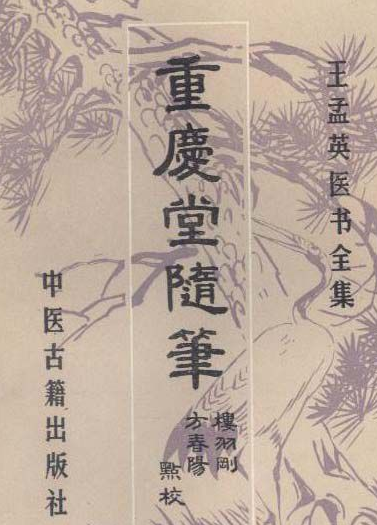 王孟英医书全集
重慶堂隨筆
樓羽剛
方春陽
點校
中医古籍出版社